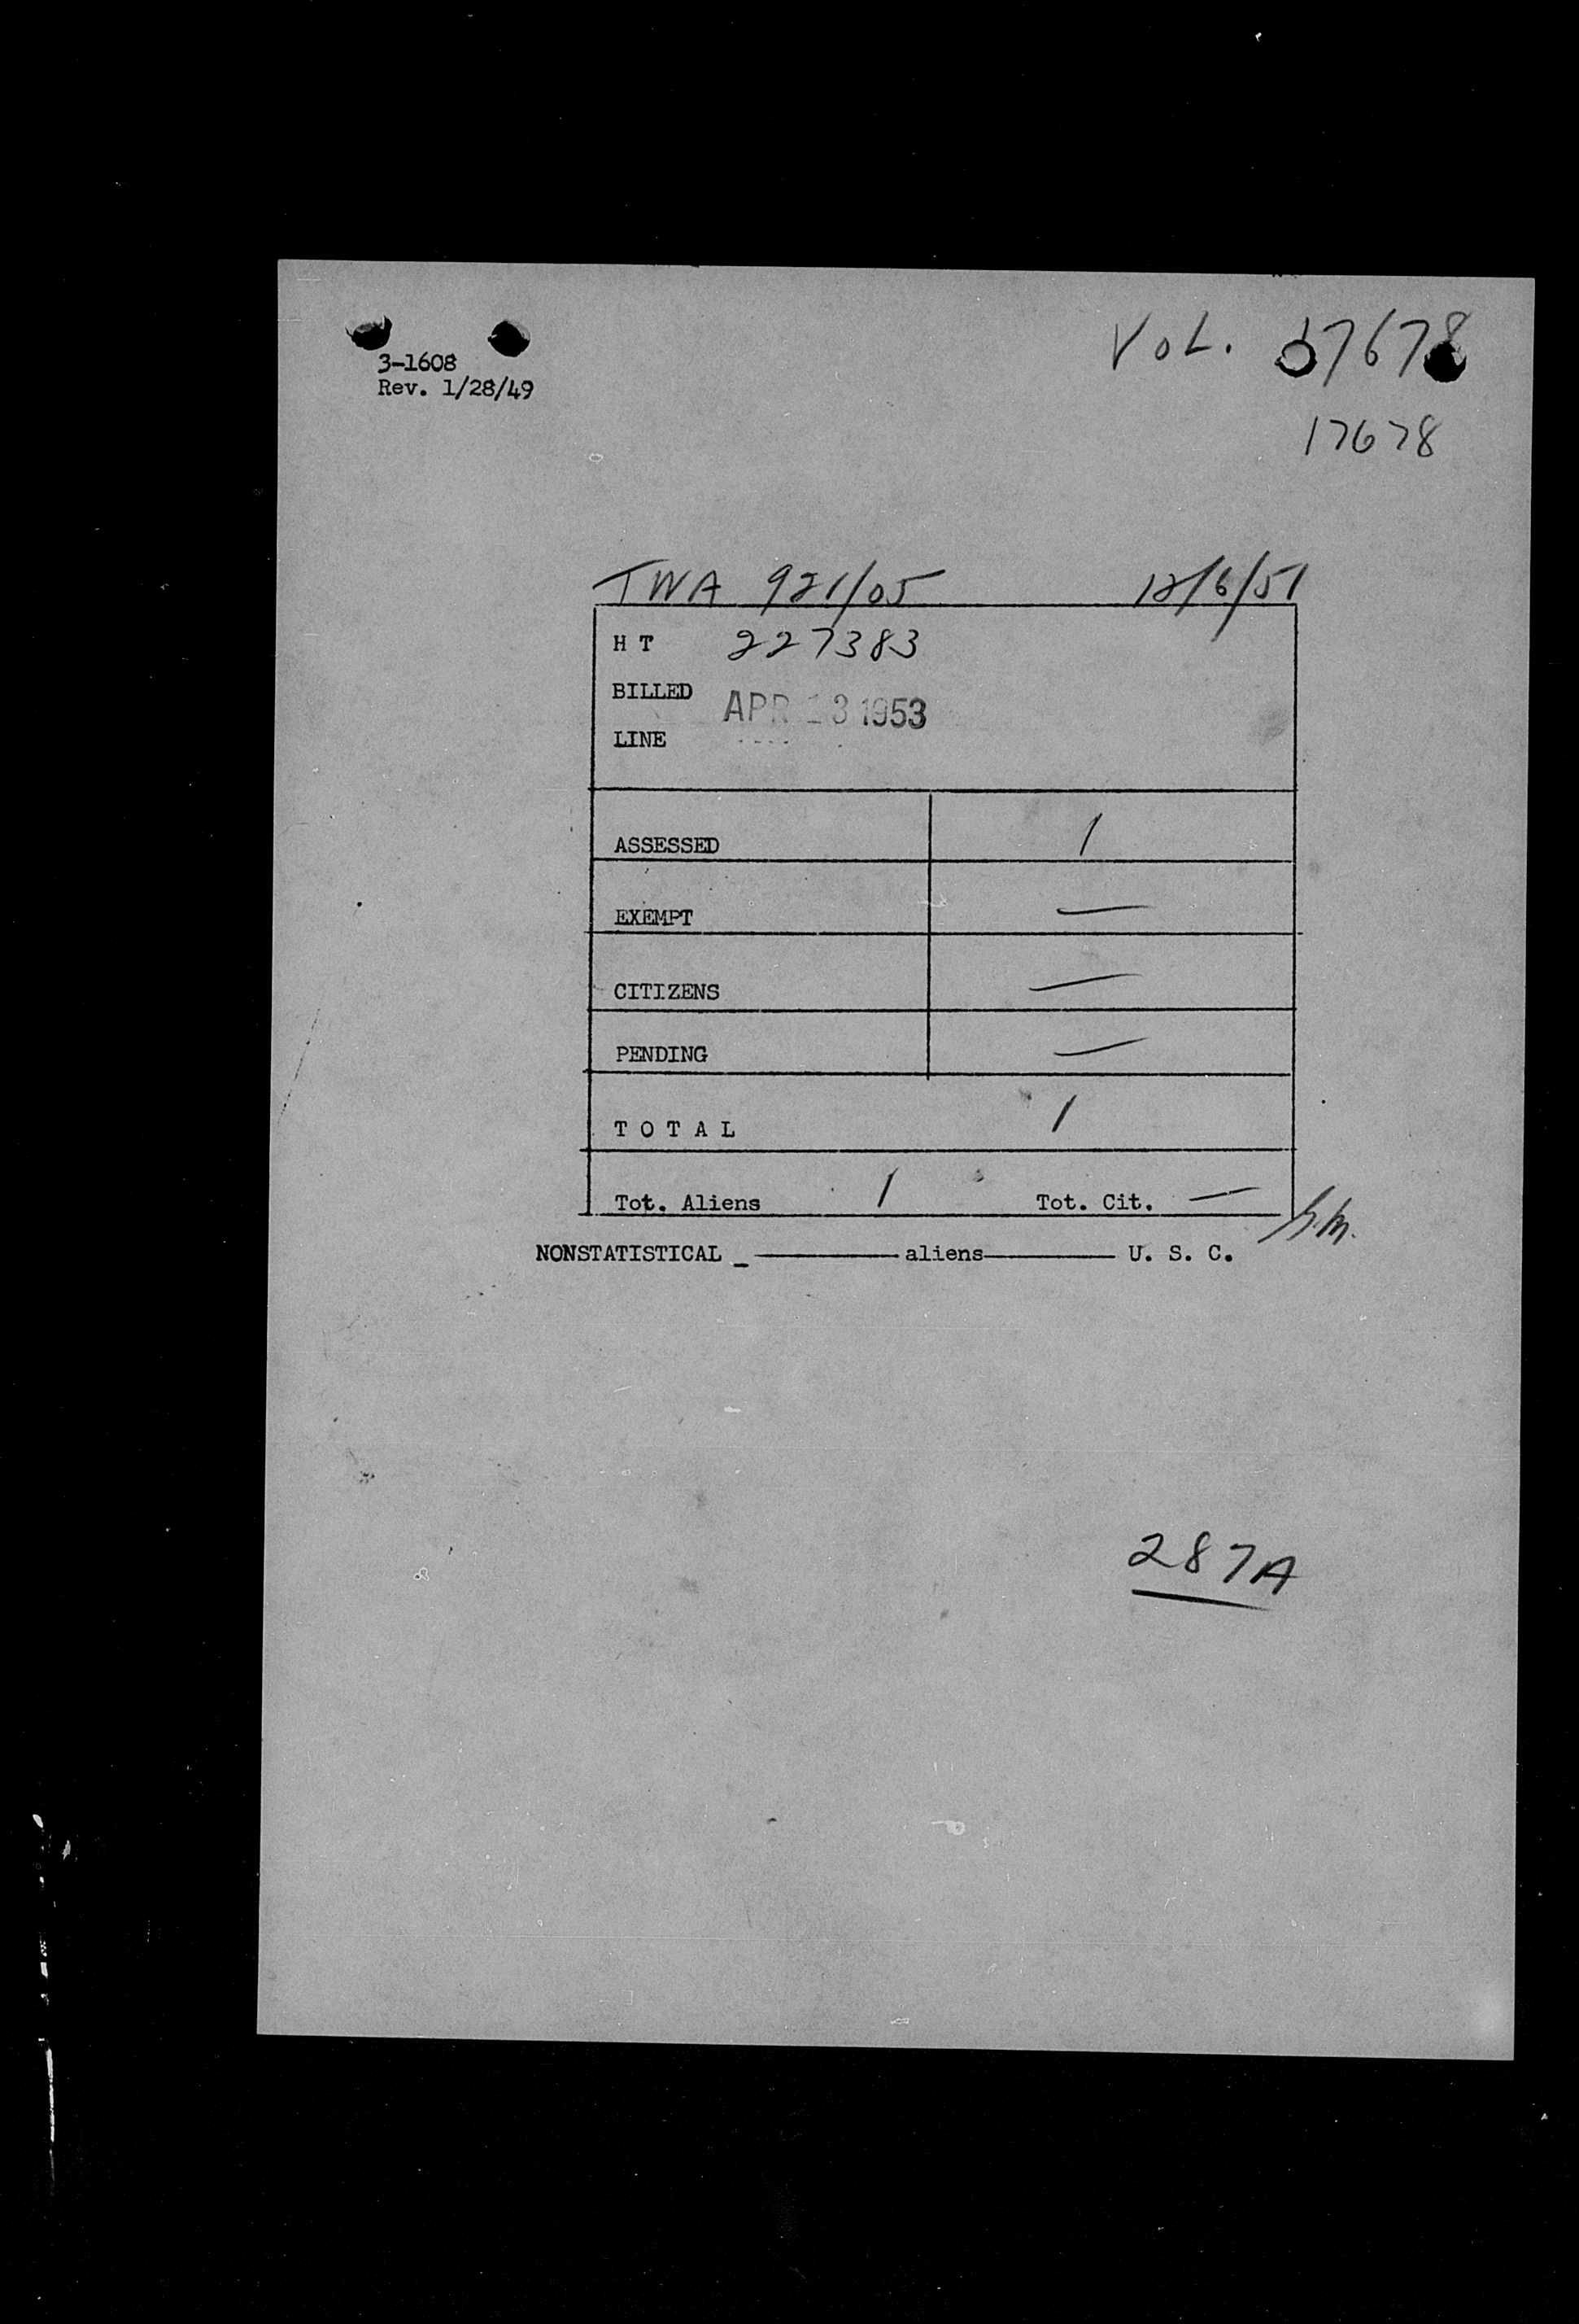 3-1608
Rev. 1/28/49
VOL. 17678
17678
TWA 921/05 12/6/51
H T 227383
BILLED
APR 3 1953
LINE
ASSESSED 1
EXEMPT —
CITIZENS —
PENDING —
T O T A L 1
Tot. Aliens 1 Tot. Cit. —
NONSTATISTICAL _ ———— aliens ———— U. S. C.
287A